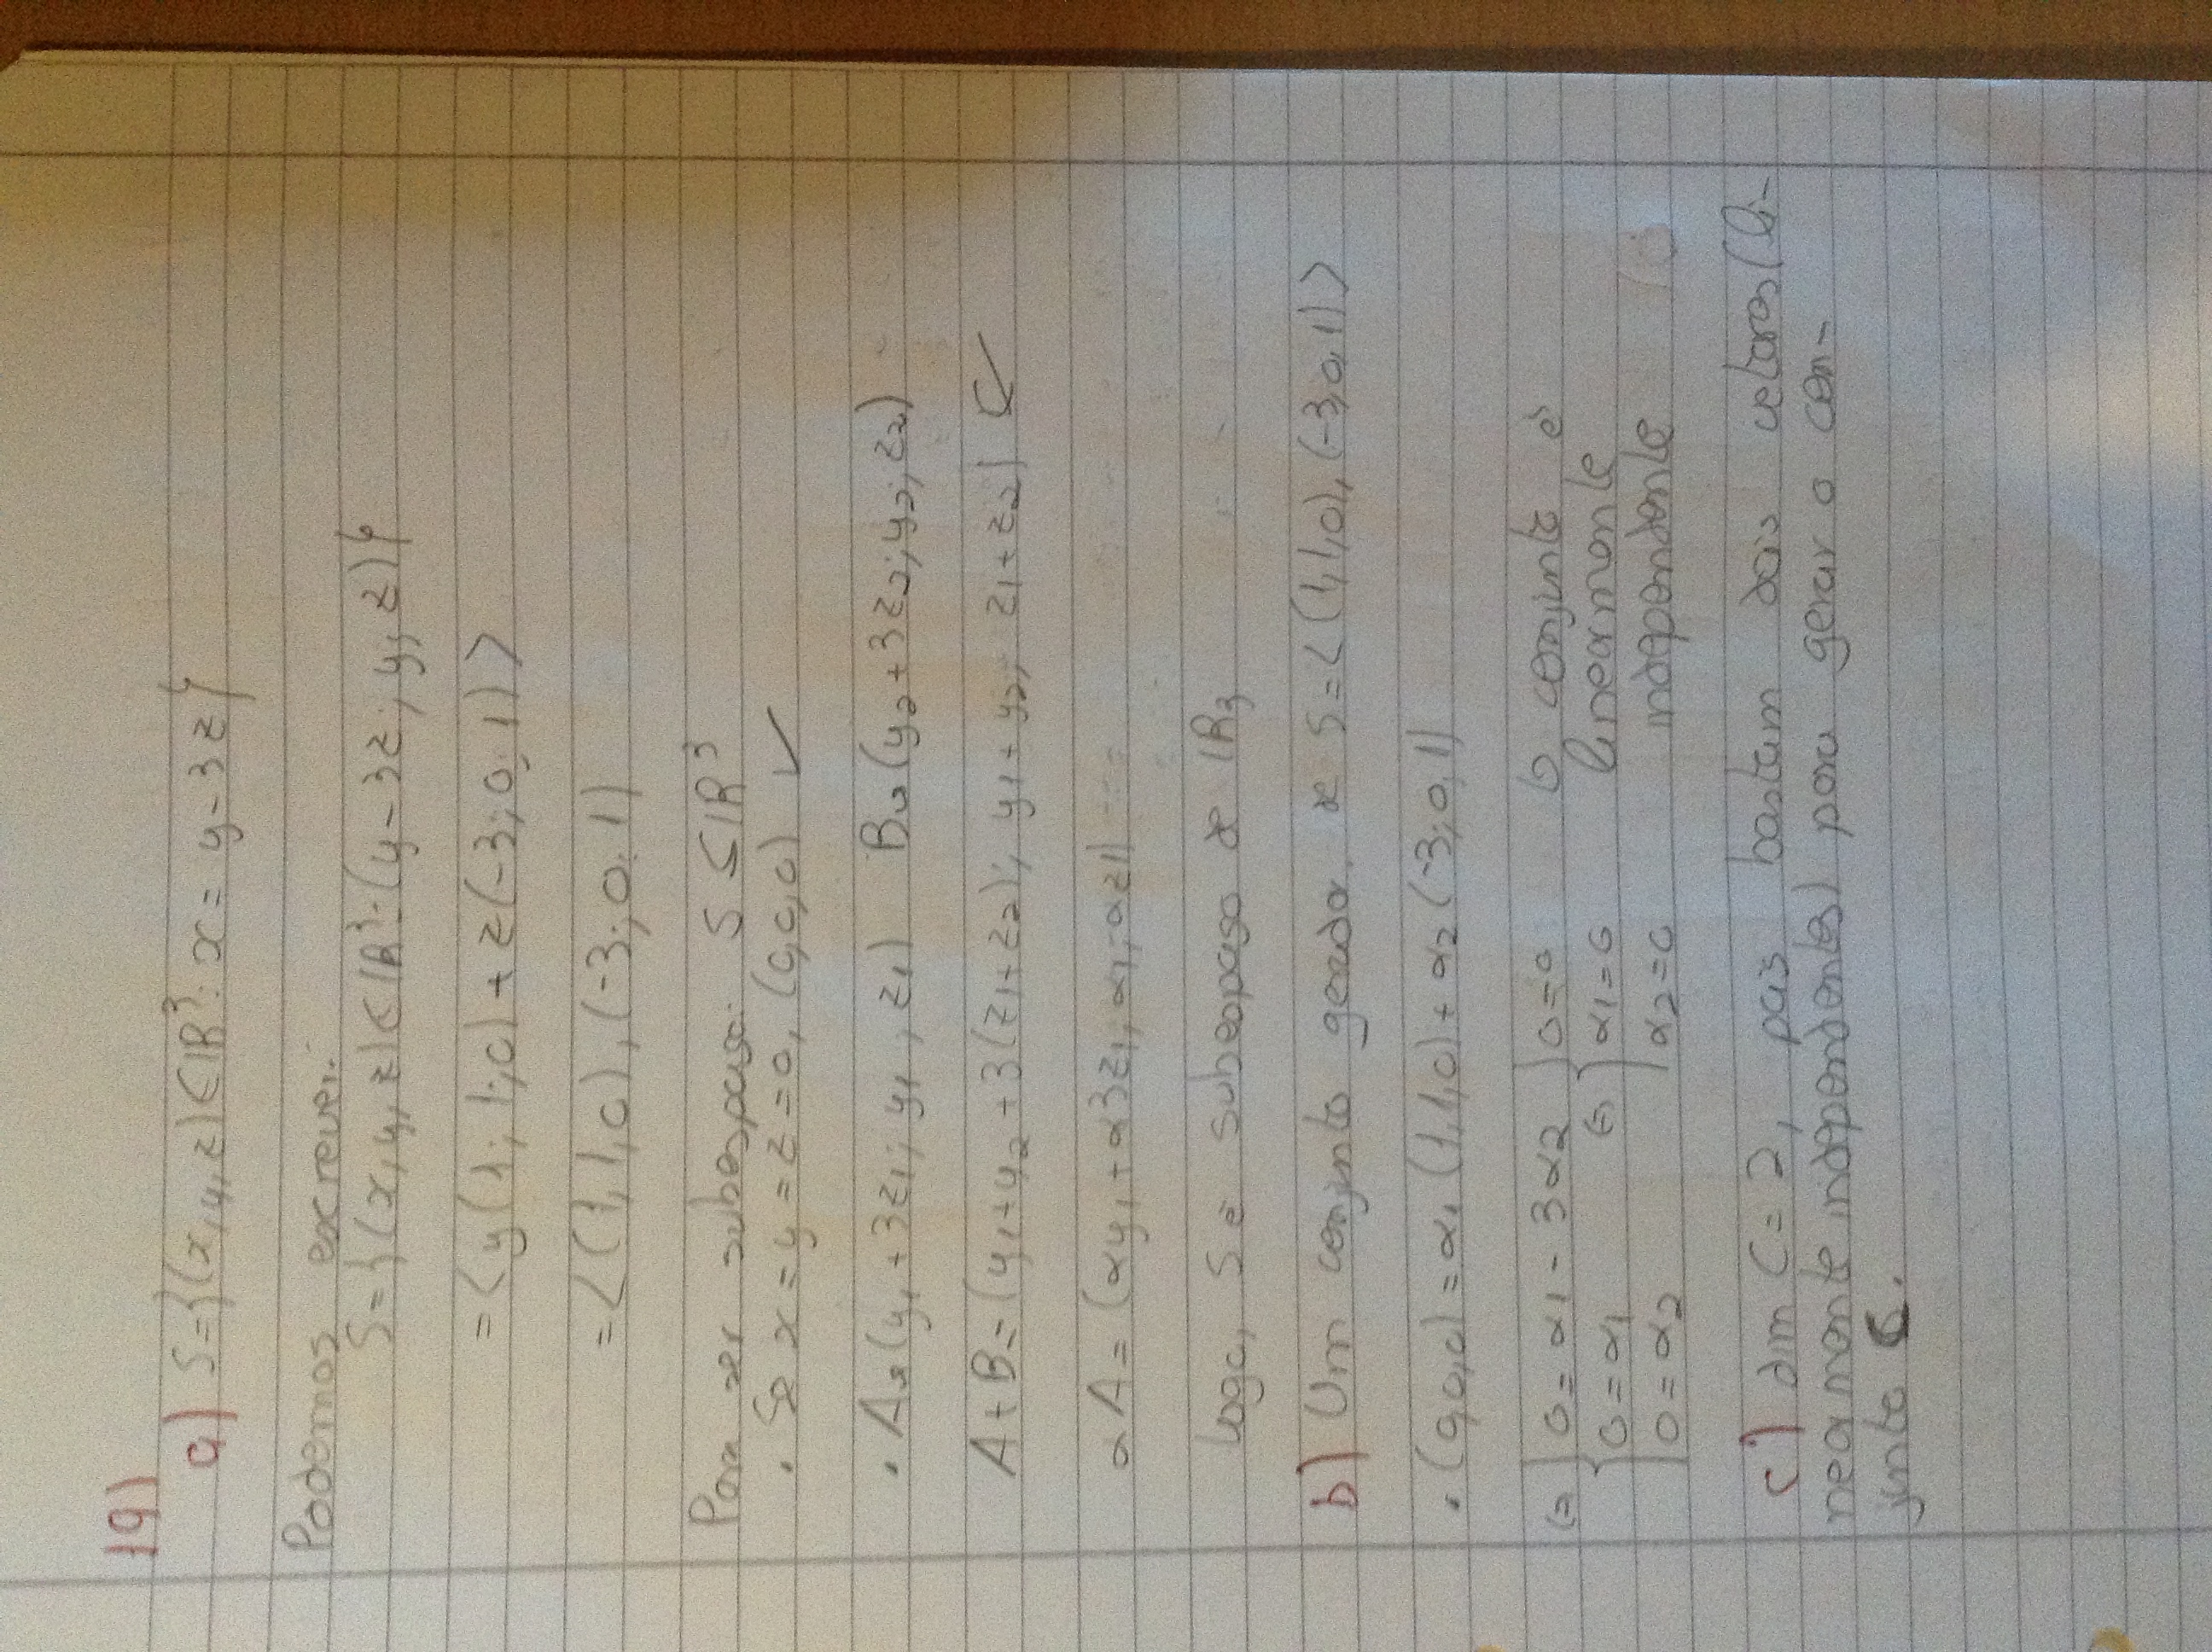 19)
a) S={(x,y,z)∈IR³: x = y-3z}
Podemos escrever:
S={(x,y,z)∈IR³:(y-3z; y; z)}
=<y(1; 1; 0) + z(-3; 0; 1)>
=<(1,1,0), (-3; 0; 1)
Para ser subespaço: S ≤ IR³
. Se x=y=z=0, (0,0,0) ✓
. A=(y₁+3z₁; y₁; z₁) B=(y₂+3z₂; y₂; z₂)
A+B=(y₁+y₂+3(z₁+z₂); y₁+y₂; z₁+z₂) ✓
αA=(αy₁+α3z₁; α₁; αz1)
Logo, S é subespaço de IR₃
b) Um conjunto gerador de S=<(1,1,0), (-3,0,1)>
. (0,0,0)=α₁(1,1,0)+α₂(-3;0,1)
(=) {0=α1-3α2 {0=0 O conjunto é
{0=α1 (=) {α1=0 linearmente
{0=α2 {α2=0 independente
c) dim C=2, pois bastam dois vetores (li-
nearmente independentes) para gerar o con-
junto C.